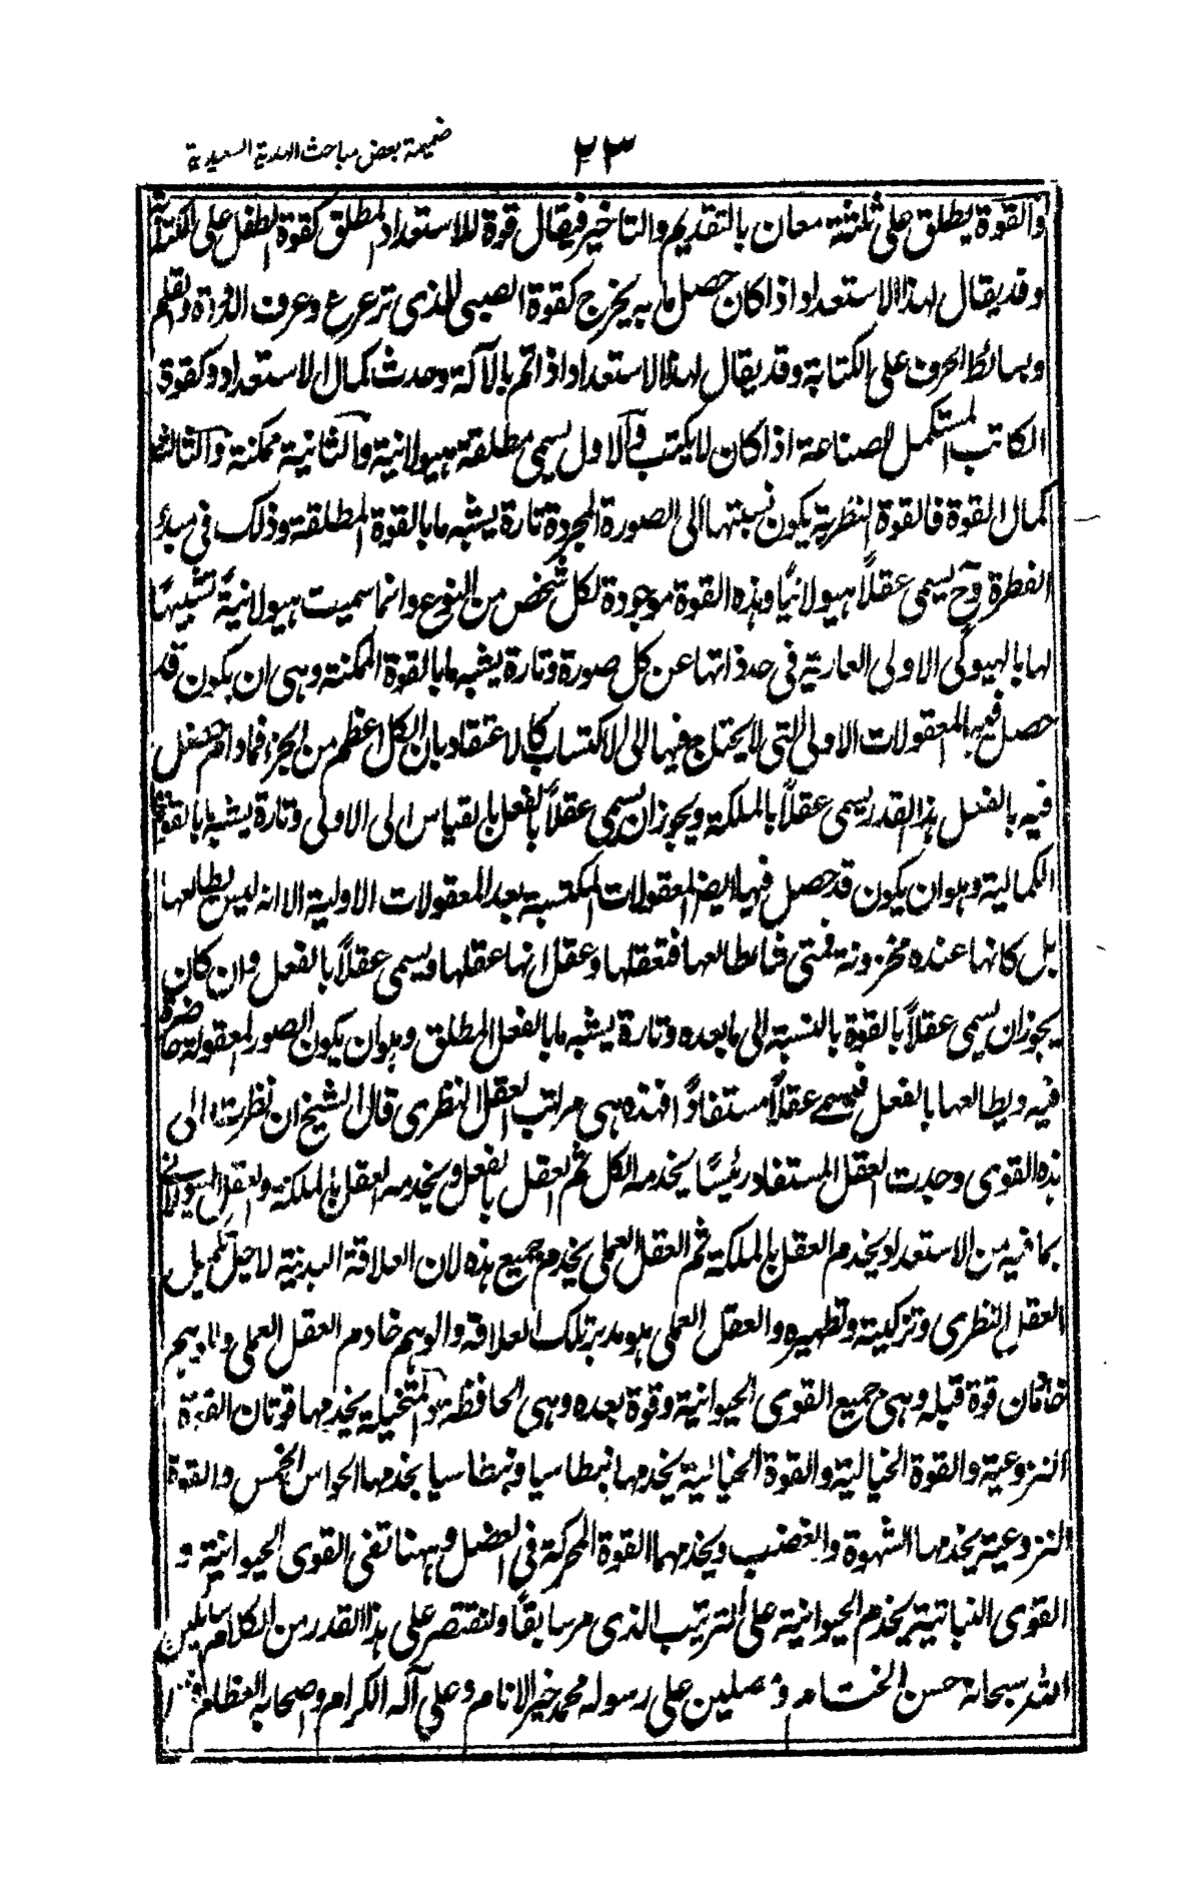 ٢٣
ضميمة بعض مباحث الهدية السعيدية
والقوة يطلق على ثلثة معان بالتقديم والتاخير فيقال قوة للاستعداد المطلق كقوة الطفل على الكتابة
وقد يقال لهذا الاستعداد اذا كان حصل ما به يخرج كقوة الصبي الذى ترعرع وعرف الدواة والقلم
وبسائط الحروف على الكتابة وقد يقال لهذا الاستعداد اذا تم بالآلة وحدث كمال الاستعداد كقوة
الكاتب المستكمل للصناعة اذا كان لا يكتب والاول يسمى مطلقة هيولانية والثانية ممكنة والثالثة
كمال القوة فالقوة النظرية يكون نسبتها الى الصورة المجردة تارة يشبه ما بالقوة المطلقة وذلك فى مبدء
الفطرة وح يسمى عقلاً هيولانيًا وهذه القوة موجودة لكل شخص من النوع وانما سميت هيولانيةً تشبيهًا
لها بالهيولى الاولى العارية فى حد ذاتها عن كل صورة وتارة يشبه ما بالقوة الممكنة وهى ان يكون قد
حصل فيه المعقولات الاولى التى لا يحتاج فيها الى الاكتساب كالاعتقاد بان الكل اعظم من الجزء فما دام حصل
فيه بالفعل هذا القدر يسمى عقلاً بالملكة ويجوز ان يسمى عقلاً بالفعل بالقياس الى الاولى وتارة يشبه ما بالقوة
الكمالية وهو ان يكون قد حصل فيها ايضا المعقولات المكتسبة بعد المعقولات الاولية الا انه ليس يطالعها
بل كانها عنده مخزونة فمتى شاء طالعها فتعقلها وعقل انها عقلها ويسمى عقلاً بالفعل وان كان
يجوز ان يسمى عقلاً بالقوة بالنسبة الى ما بعده وتارة يشبه ما بالفعل المطلق وهو ان يكون الصور المعقولة حاضرة
فيه ويطالعها بالفعل فيسمى عقلاً مستفادًا فهذه هى مراتب العقل النظرى قال الشيخ ان نظرت الى
هذه القوى وجدت العقل المستفاد رئيسًا يخدمه الكل ثم العقل بالفعل ويخدمه العقل بالملكة والعقل الهيولانى
بما فيه من الاستعداد يخدم العقل بالملكة ثم العقل العملى يخدم جميع هذه لان العلاقة البدنية لاجل تكميل
العقل النظرى وتزكيته وتطهيره والعقل العملى هو مدبر تلك العلاقة والوهم خادم العقل العملى والوهم
خادمان قوة قبله وهى جميع القوى الحيوانية وقوة بعده وهى الحافظة والمتخيلة يخدمها قوتان القوة
النزوعية والقوة الخيالية والقوة الخيالية يخدمها بنطاسيا وبنطاسيا يخدمها الحواس الخمس والقوة
النزوعية يخدمها الشهوة والغضب ويخدمهما القوة المحركة فى العضل وههنا تفنى القوى الحيوانية و
القوى النباتية يخدم الحيوانية على الترتيب الذى مر سابقًا ولنقتصر على هذا القدر من الكلام سائلين
الله سبحانه حسن الختام ومصلين على رسوله محمد خير الانام وعلى آله الكرام واصحابه العظام